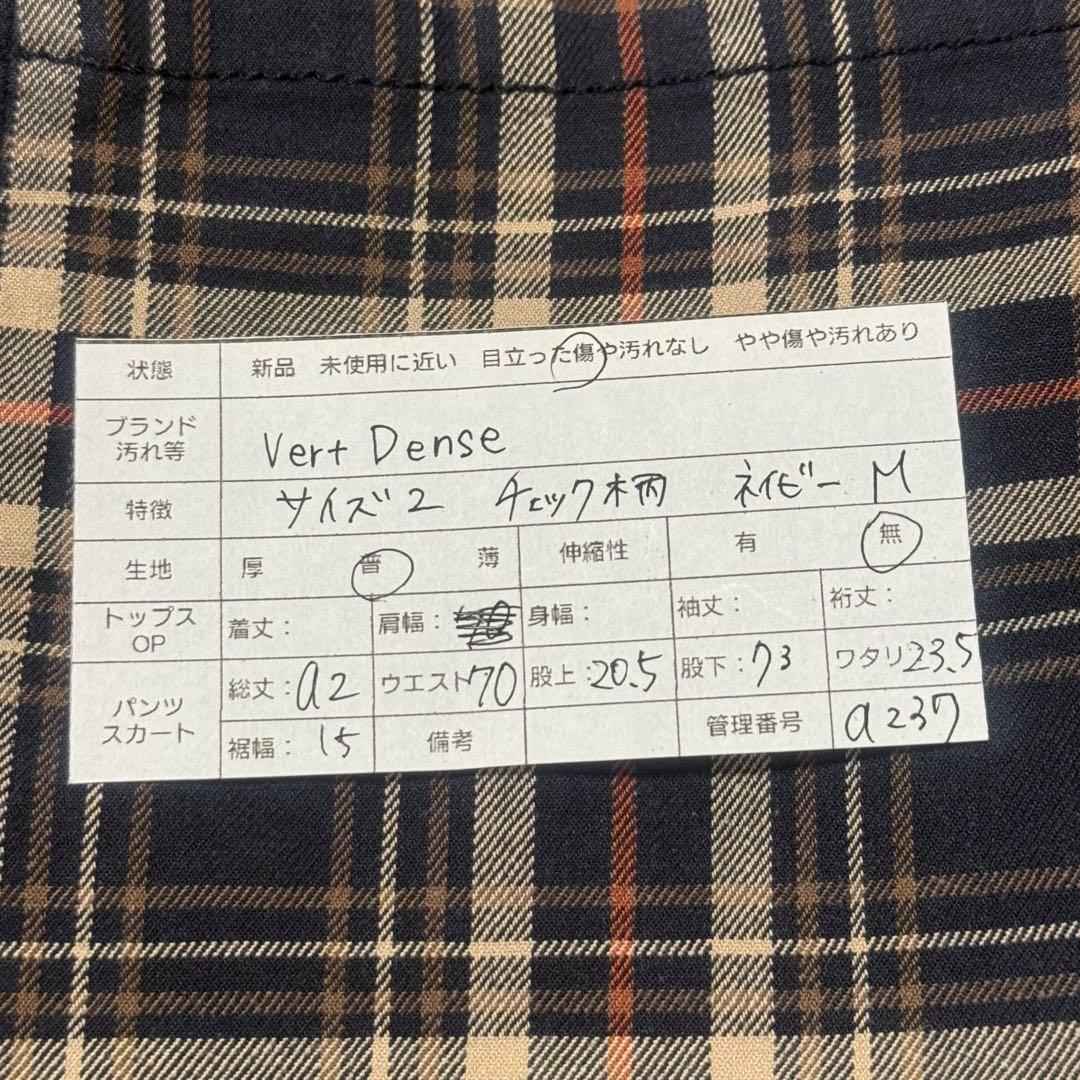 状態 新品 未使用に近い 目立った傷や汚れなし やや傷や汚れあり
ブランド
汚れ等
Vert Dense
特徴 サイズ2 チェック柄 ネイビー M
生地 厚 普 薄 伸縮性 有 無
トップス
OP
着丈: 肩幅: 身幅: 袖丈: 裄丈:
パンツ
スカート
総丈: a2 ウエスト70 股上:20.5 股下:73 ワタリ23.5
裾幅: 15 備考 管理番号 a237